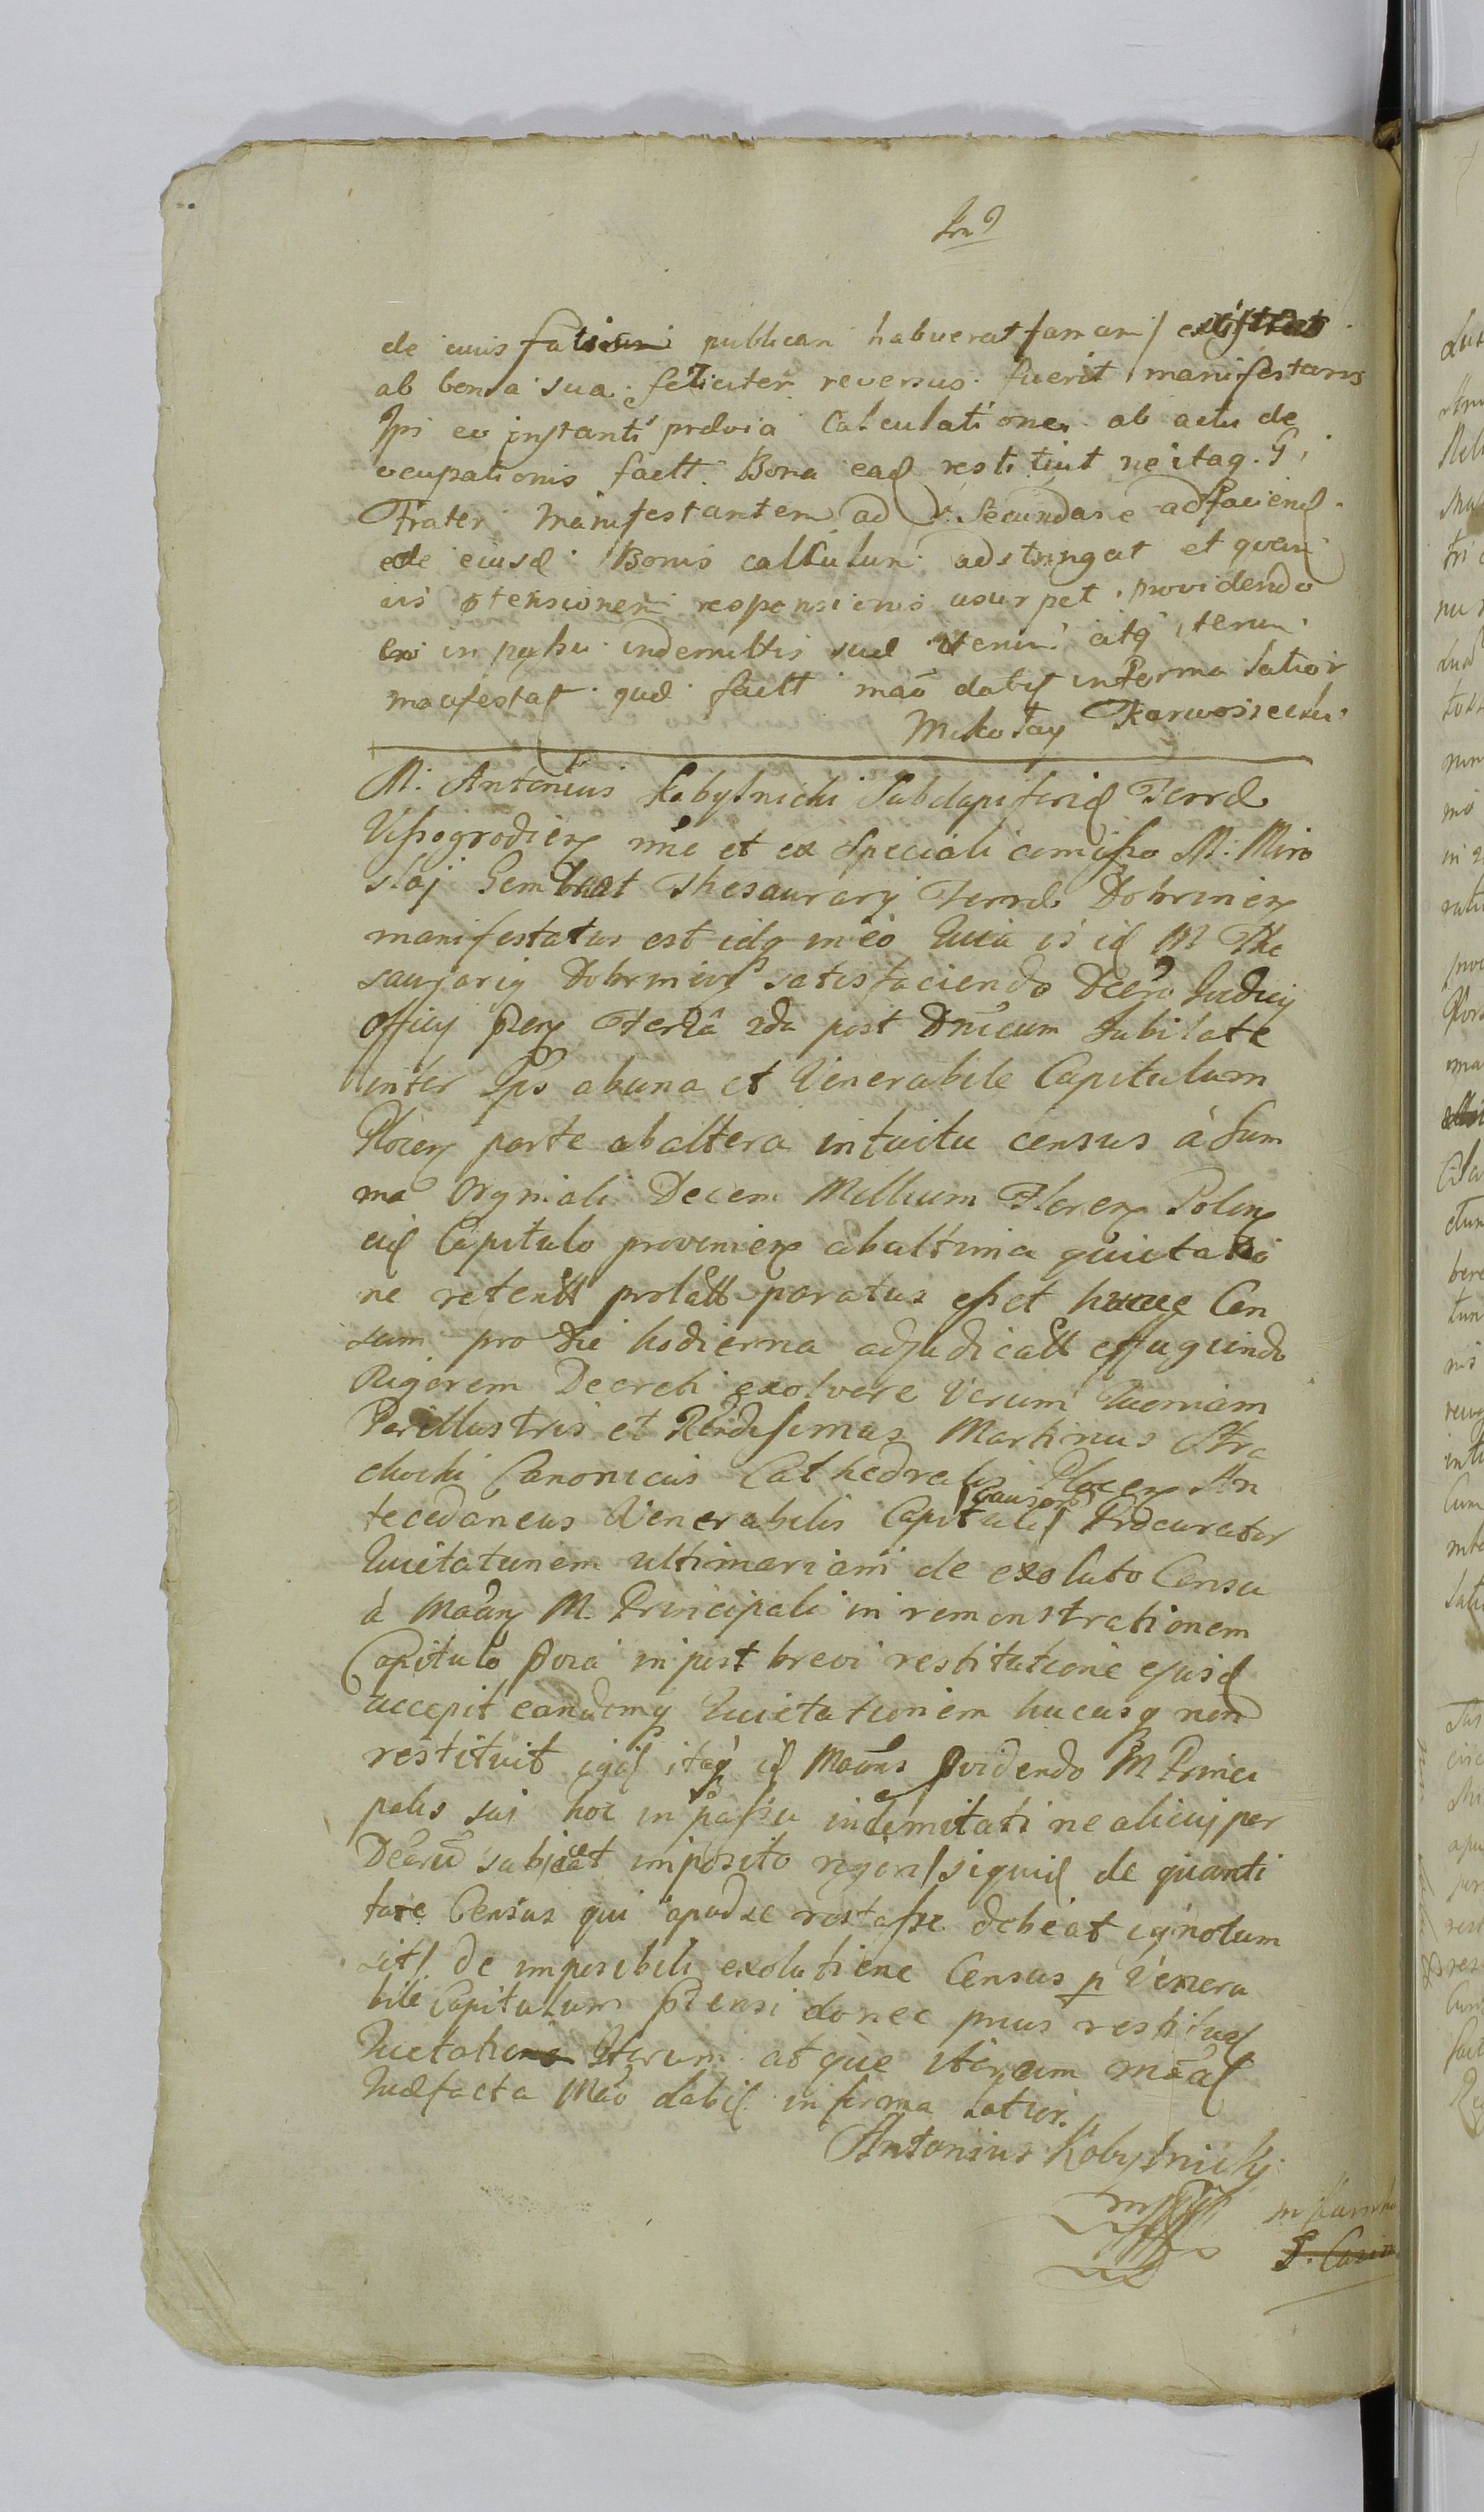 de cuius publicam habuerat famam/
ab bona sua feliciter reversus fuerit manifestans
Ipi ex instanti prævia Calculatione ab actu de
ocupationis factt. Bona eađ restituit ne itaq. G.
Frater Manifestantem ad secundarie ad faciend.
de eiusđ Bonis calculum adstringat et quam
vis ostensionem responsionis usurpet providendo
in passu indemnittis suæ iterum atq iterum
manifestat quæ factt mão dabit in forma latior
Mikołay Karwosiecki
M. Antonius Kobylnicki Subdapiferid Terræ
Vissogrodien nne et ex Speciali comisso M. Miro
slaj Gembart Thesaurarij Terræ Dobrinen
manifestatus est idq in eo Quia is iđ M The
saurarig Dobrinen satisfaciendo Dcero Judicij
Officij Pen Feriâ 2da post Dnicum Jubilate
inter Ips abuna et Venerabile Capitulum
Plocen parte ab altera intuitu census à Sum
ma Orginali Decem Millium Floren Polon
eiđ Capitulo provenien ab altima quietatio
ne retentt prolatt paratus esset hunc Cen
sum pro Die hodierna adjudicatt effugiendo
Rigorem Decreti exolvere Verum Quoniam
Perillustris et Rendissimus Martinus Stra
chocki Canonicus Cathedralis Plocen An
tecedaneus Venerabilis Capituli /Causar/ Procurator
Quietationem ultimariam de exoluto Censu
à Maãn M. Principali in remonstrationem
Capitulo in post brevi restitutione ejusđ
accepit eandemq Quietationem hucusq non
restituit itaq iđ Maãns Pvidendo M Princi
palis sui hoc in passu indemnitati ne alicuj per
Decrũ subjaceat imposito rigori/siquiđ de quanti
tate Census qui apud se restasse debeat ignotum
sit/ De imposibili exolutione Census p Venera
bile Capitulum Ptensi donec prius restituat
Quietatione Iterum atque iterum mãat
Quæ facta Mão dabit in forma latior.
Antonius Kobylnicky